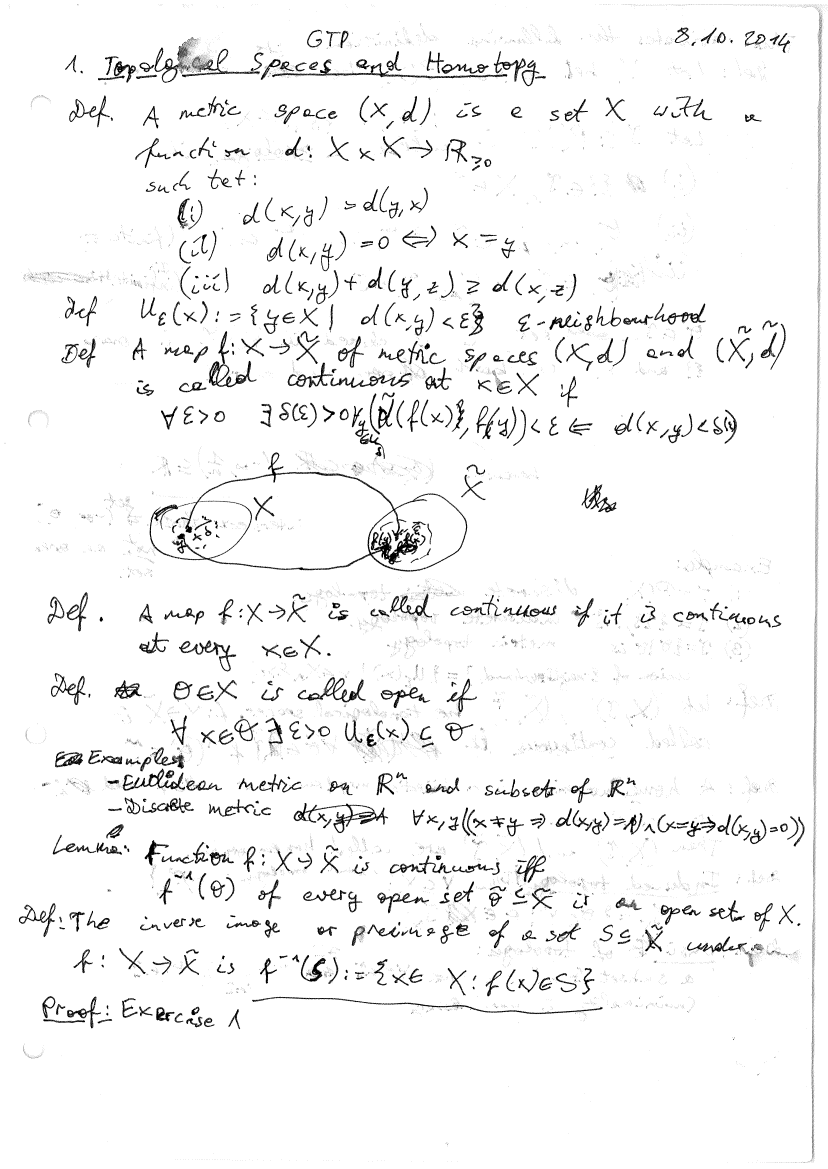 GTP 8.10.2014
1. Topological Spaces and Homotopy
Def. A metric space (X,d) is a set X with a
function d: X x X → ℝ≥0
such tet:
(i) d(x,y) = d(y,x)
(ii) d(x,y) = 0 ⇔ x = y,
(iii) d(x,y) + d(y,z) ≥ d(x,z)
Def Uε(x) := {y∈X | d(x,y) < ε} ε-neighbourhood
Def A map f: X → X̃ of metric spaces (X,d) and (X̃,d̃)
is called continuous at x∈X if
∀ε>0 ∃δ(ε)>0 ∀y (d̃(f(x), f(y)) < ε ⇐ d(x,y) < δ(ε))
f
X X̃
y x δ
Def. A map f: X → X̃ is called continuous if it is continuous
at every x∈X.
Def. O∈X is called open if
∀ x∈O ∃ ε>0 Uε(x) ⊆ O
Examples
- Euclidean metric on ℝⁿ and subsets of ℝⁿ
- Discete metric ∀x,y((x≠y ⇒ d(x,y)=1) ∧ (x=y ⇒ d(x,y)=0))
Lemma: Function f: X → X̃ is continuous iff
f⁻¹(O) of every open set Õ ⊆ X̃ is an open set of X.
Def: The inverse image or preimage of a set S ⊆ X̃ under
f: X → X̃ is f⁻¹(S) := {x∈ X: f(x)∈S}
Proof: Exercise 1